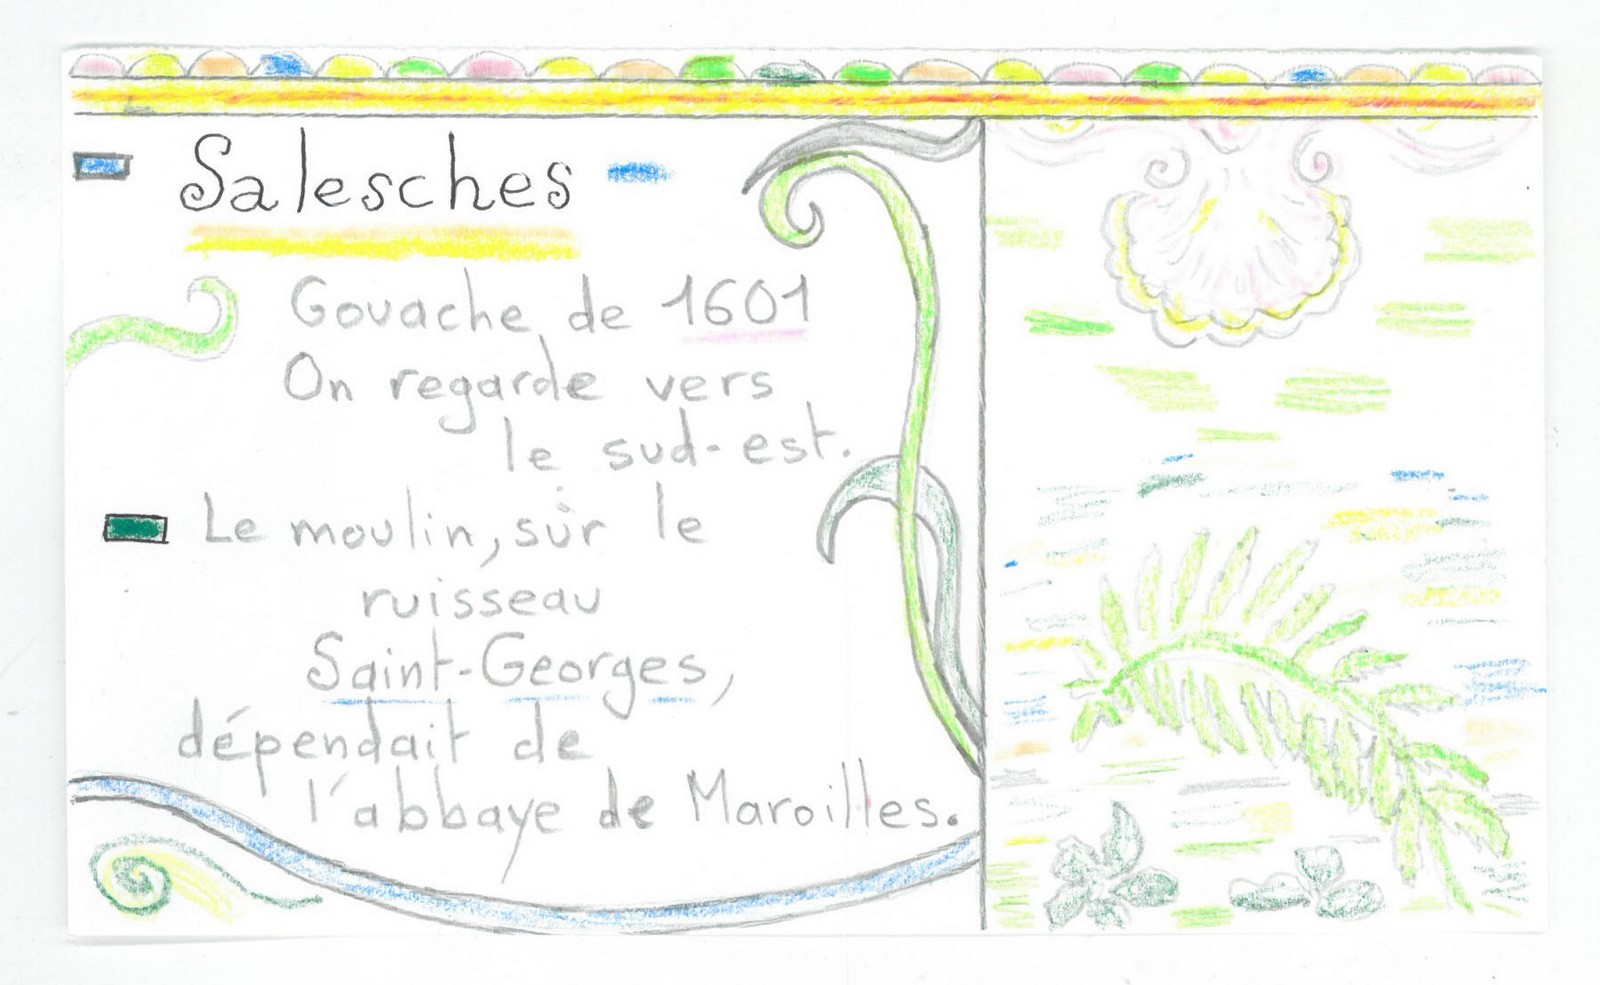 Salesches
Gouache de 1601
On regarde vers
le sud-est.
Le moulin, sur le
ruisseau
Saint-Georges,
dépendait de
l'abbaye de Maroilles.